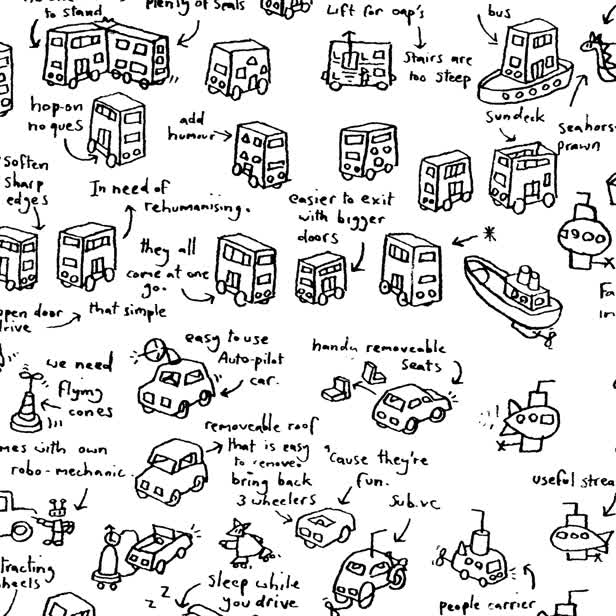 to stand
plenty of seats
Lift for oap's
bus
Stairs are
too steep
hop-on
no ques
add
humour
Sundeck
Seahors
prawn
Soften
sharp
edges
In need of
rehumanising.
easier to exit
with bigger
doors
*
they all
come at one
go.
open door
drive
that simple
we need
flying
cones
easy to use
Auto-pilot
car.
handy removeable
Seats
mes with own
robo-mechanic
removeable roof
that is easy
to remove.
bring back
3 wheelers
'Cause they're
fun.
Sub.vc
useful strea
tracting
heels
Sleep while
you drive
z z
people carrier